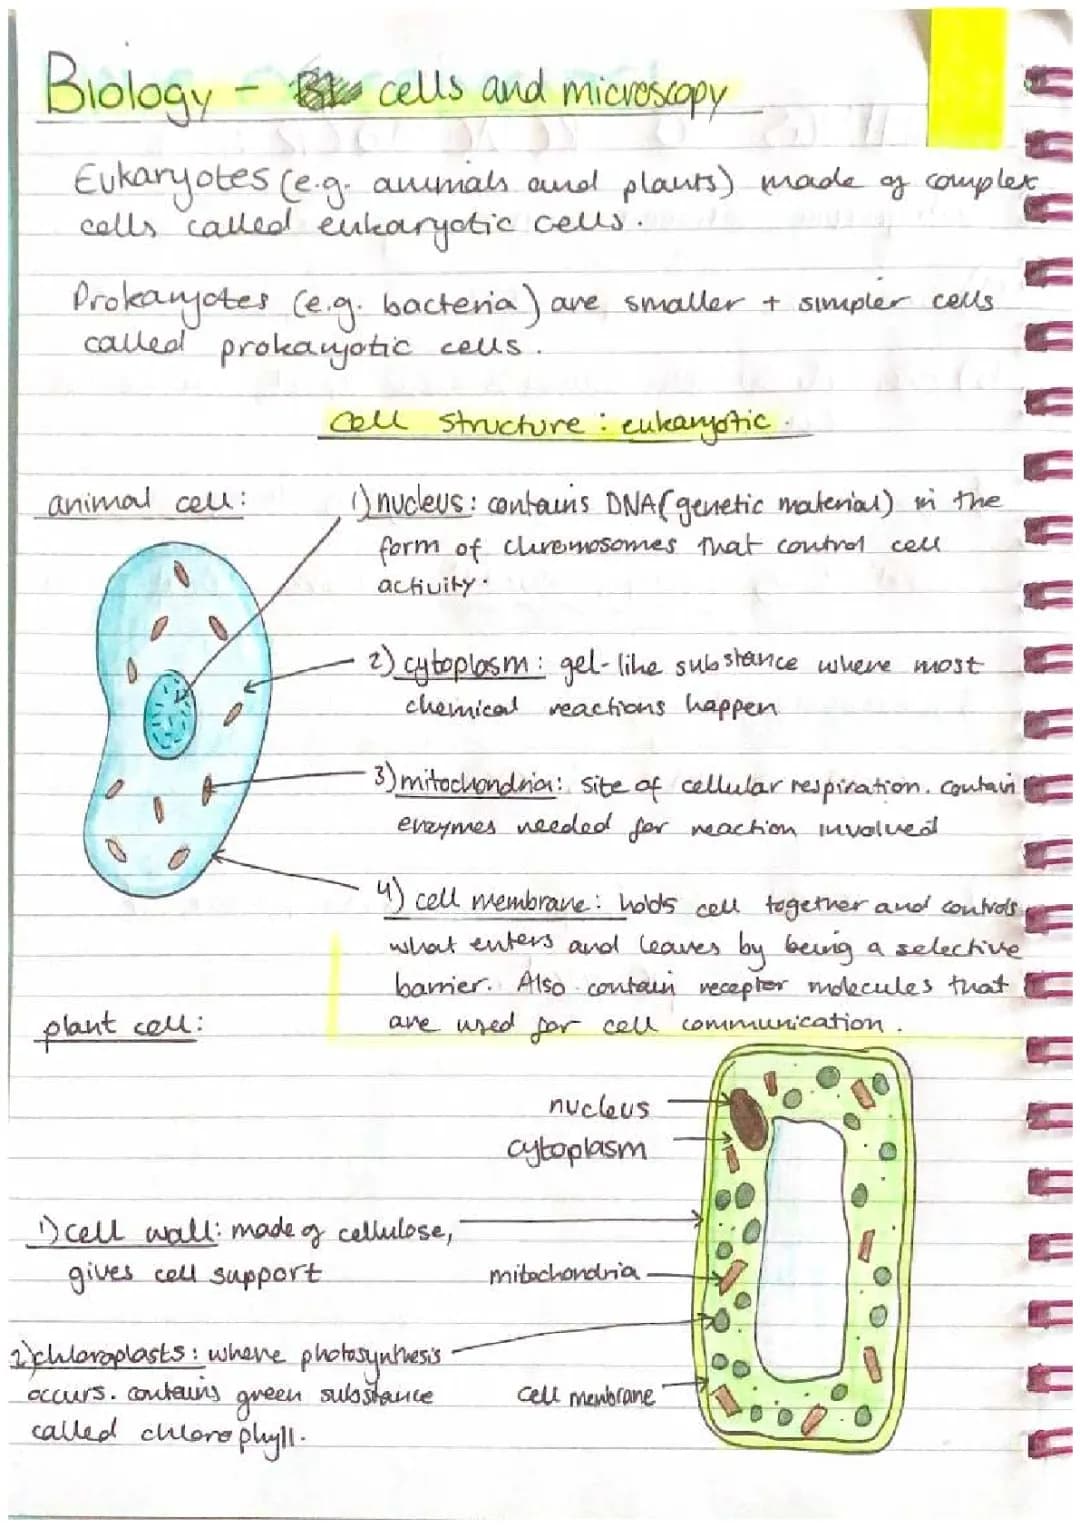 Biology - cells and microscopy
Eukaryotes (e.g. animals and plants) made of complex
cells called eukaryotic cells.
Prokaryotes (e.g. bacteria) are smaller + simpler cells
called prokaryotic cells.
cell structure : eukaryotic.
animal cell:
1) nucleus: contains DNA (genetic material) in the
form of chromosomes that control cell
activity.
2) cytoplasm: gel-like substance where most
chemical reactions happen
3) mitochondria: site of cellular respiration. contain
enzymes needed for reaction involved
4) cell membrane: holds cell together and controls
what enters and leaves by being a selective
barrier. Also contain receptor molecules that
are used for cell communication.
plant cell:
nucleus
cytoplasm
1) cell wall: made of cellulose,
gives cell support
mitochondria
2) chloroplasts: where photosynthesis
occurs. contains green substance
called chlorophyll.
cell membrane